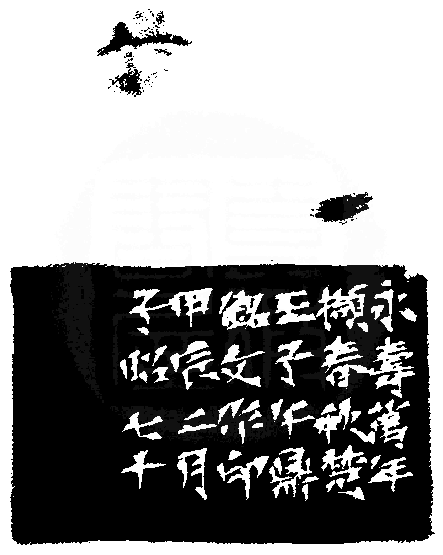 永壽萬年
擷春秋楚
王子午鼎
銘文作印
甲辰二月
子昭七十